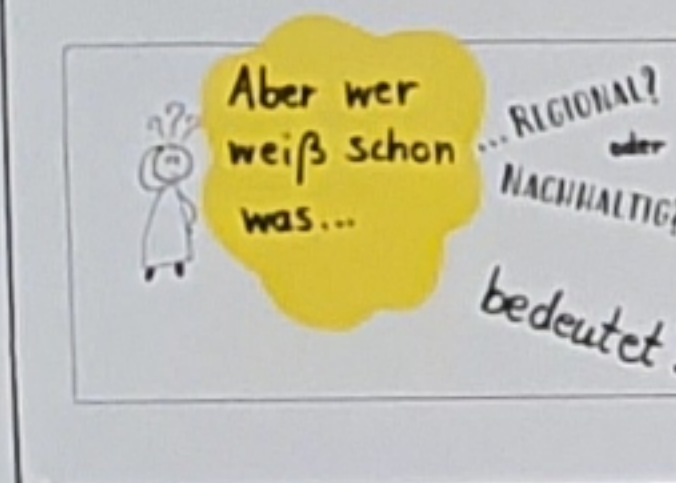 ???
Aber wer
weiß schon
was...
...REGIONAL?
oder
NACHHALTIG?
bedeutet.